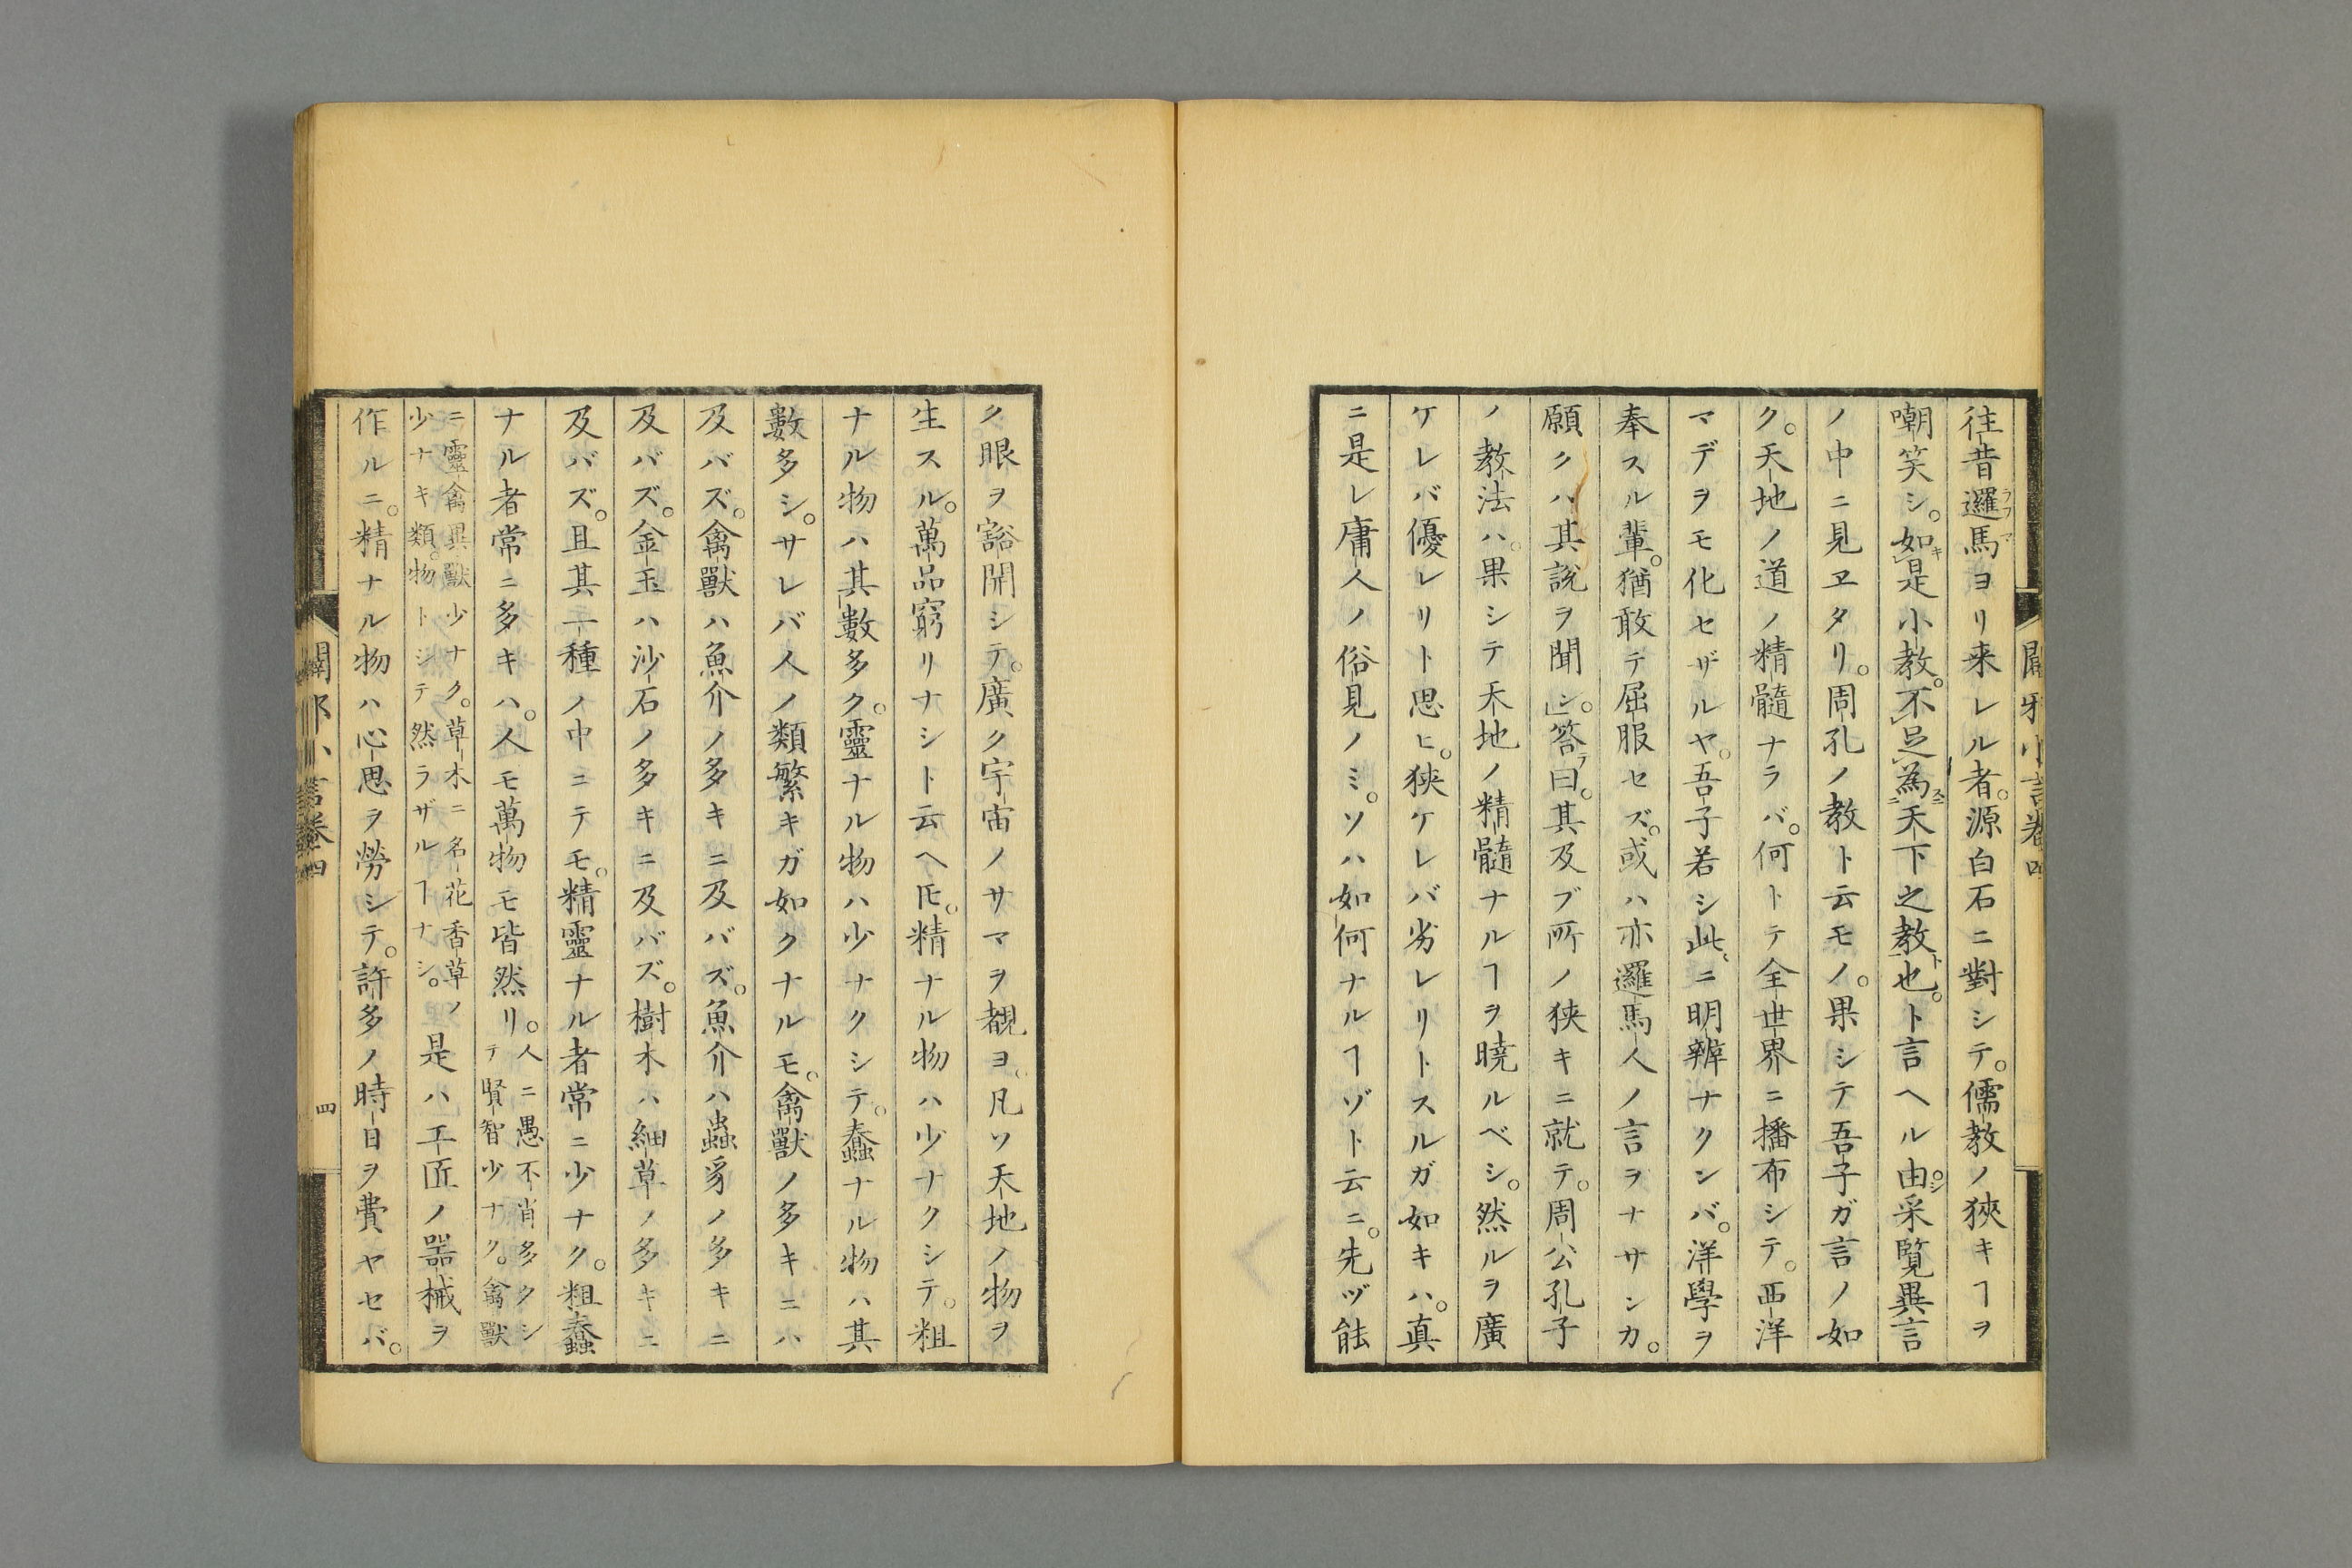 往昔邏馬ヨリ来レル者。源白石ニ對シテ。儒教ノ狹キヿヲ
嘲笑シ。如是小教。不足為天下之教也。ト言ヘル由。采覽異言
ノ中ニ見ヱタリ。周孔ノ教ト云モノ。果シテ吾子ガ言ノ如
ク。天地ノ道ノ精髓ナラバ。何トテ全世界ニ播布シテ。西洋
マデヲモ化セザルヤ。吾子若シ此ニ明辨ナクンバ。洋學ヲ
奉スル輩。猶敢テ屈服セズ。或ハ亦邏馬人ノ言ヲナサンカ。
願クハ其説ヲ聞シ。答曰。其及ブ所ノ狹キニ就テ。周公孔子
ノ教法ハ。果シテ天地ノ精髓ナルヿヲ曉ルベシ。然ルヲ廣
ケレバ優レリト思ヒ。狹ケレバ劣レリトスルガ如キハ。真
ニ是レ庸人ノ俗見ノミ。ソハ如何ナルヿゾト云ニ。先ヅ能
ク眼ヲ豁開シテ。廣ク宇宙ノサマヲ観ヨ。凡ソ天地ノ物ヲ
生スル。萬品窮リナシト云ヘ𪜈。精ナル物ハ少ナクシテ。粗
ナル物ハ其數多ク。靈ナル物ハ少ナクシテ。蠢ナル物ハ其
數多シ。サレバ人ノ類繁キガ如クナルモ。禽獸ノ多キニハ
及バズ。禽獸ハ魚介ノ多キニ及バズ。魚介ハ蟲豸ノ多キニ
及バズ。金玉ハ沙石ノ多キニ及バズ。樹木ハ細草ノ多キニ
及バズ。且其一種ノ中ニテモ。精靈ナル者常ニ少ナク。粗蠢
ナル者常ニ多キハ。人モ萬物モ皆然リ。人ニ愚不肖多クシ
テ賢智少ナク。禽獸
ニ靈禽異獸少ナク。草木ニ名花香草ノ
少ナキ類。物トシテ然ラザルヿナシ。是ハ工匠ノ器械ヲ
作ルニ。精ナル物ハ心思ヲ勞シテ。許多ノ時日ヲ費ヤセバ。
闢邪小言卷四
四